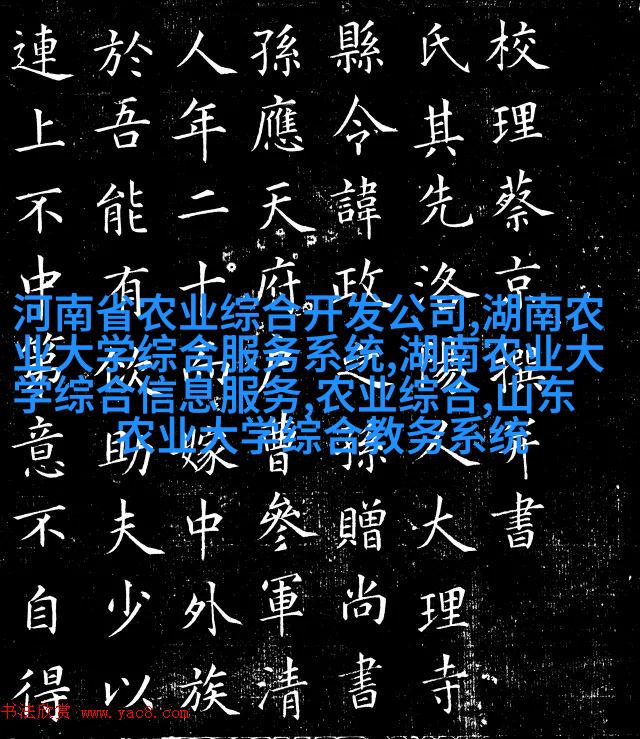 校理蔡京撰并書
氏其先洛陽人大理寺
縣令諱政之孫贈尚書
孫應天府戶曹參軍清
人年二十而嫁中外族
於吾能有欲助夫少以
連上不中第意不自得
河南省农业综合开发公司,湖南农
业大学综合服务系统,湖南农业大
学综合信息服务,农业综合,山东
农业大学综合教务系统
书法欣赏 www.yac8.com